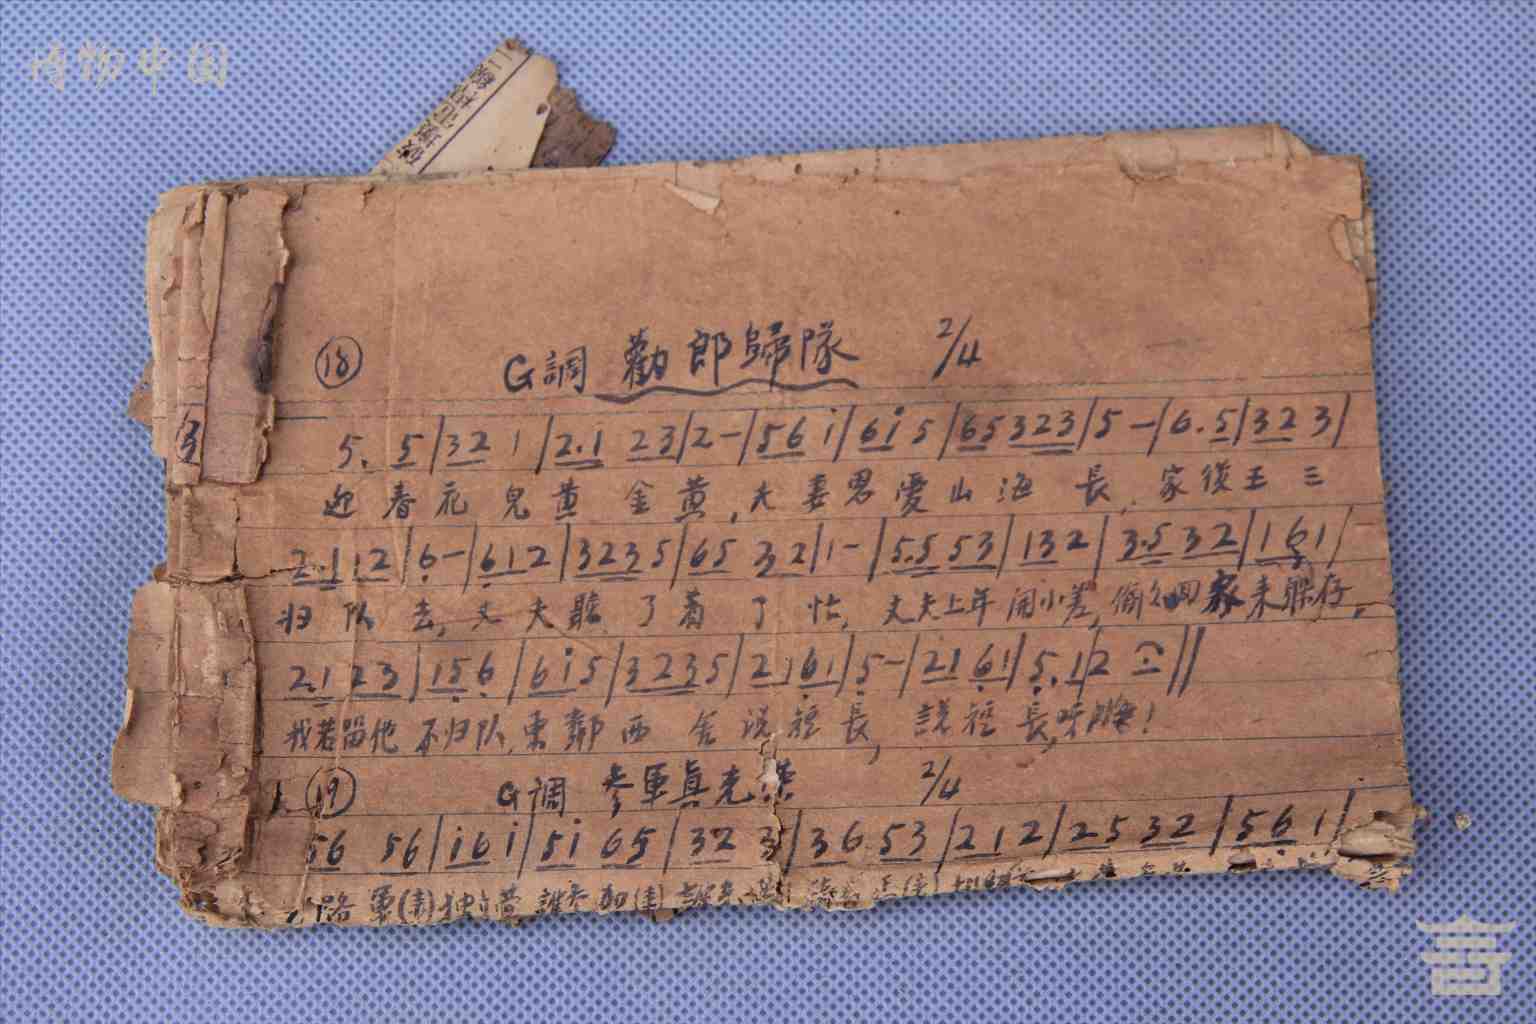 博物中国
⑱ G調 勸郎歸隊 2/4
5. 5|32 1|2.i 23|2-|56 i|6i 5|65 323|5-|6.5|32 3|
迎春花兒黄金黄,夫妻恩愛山海長,家後王三
2.1 12|6-|612|3235|65 32|1-|5.5 53|132|3.5 32|161|
归队去,丈夫聽了着了忙,丈夫上年開小差,偷回家来躲存,
2.1 23|156|6i5|3235|2161|5-|21 61|5.1|2 ||
我若留他不归队,東鄰西舍说短長,説短長,呀
⑲ G調 參軍真光 2/4
56 56|i6i|5i 65|32 3|36 53|212|25 32|561|
路軍